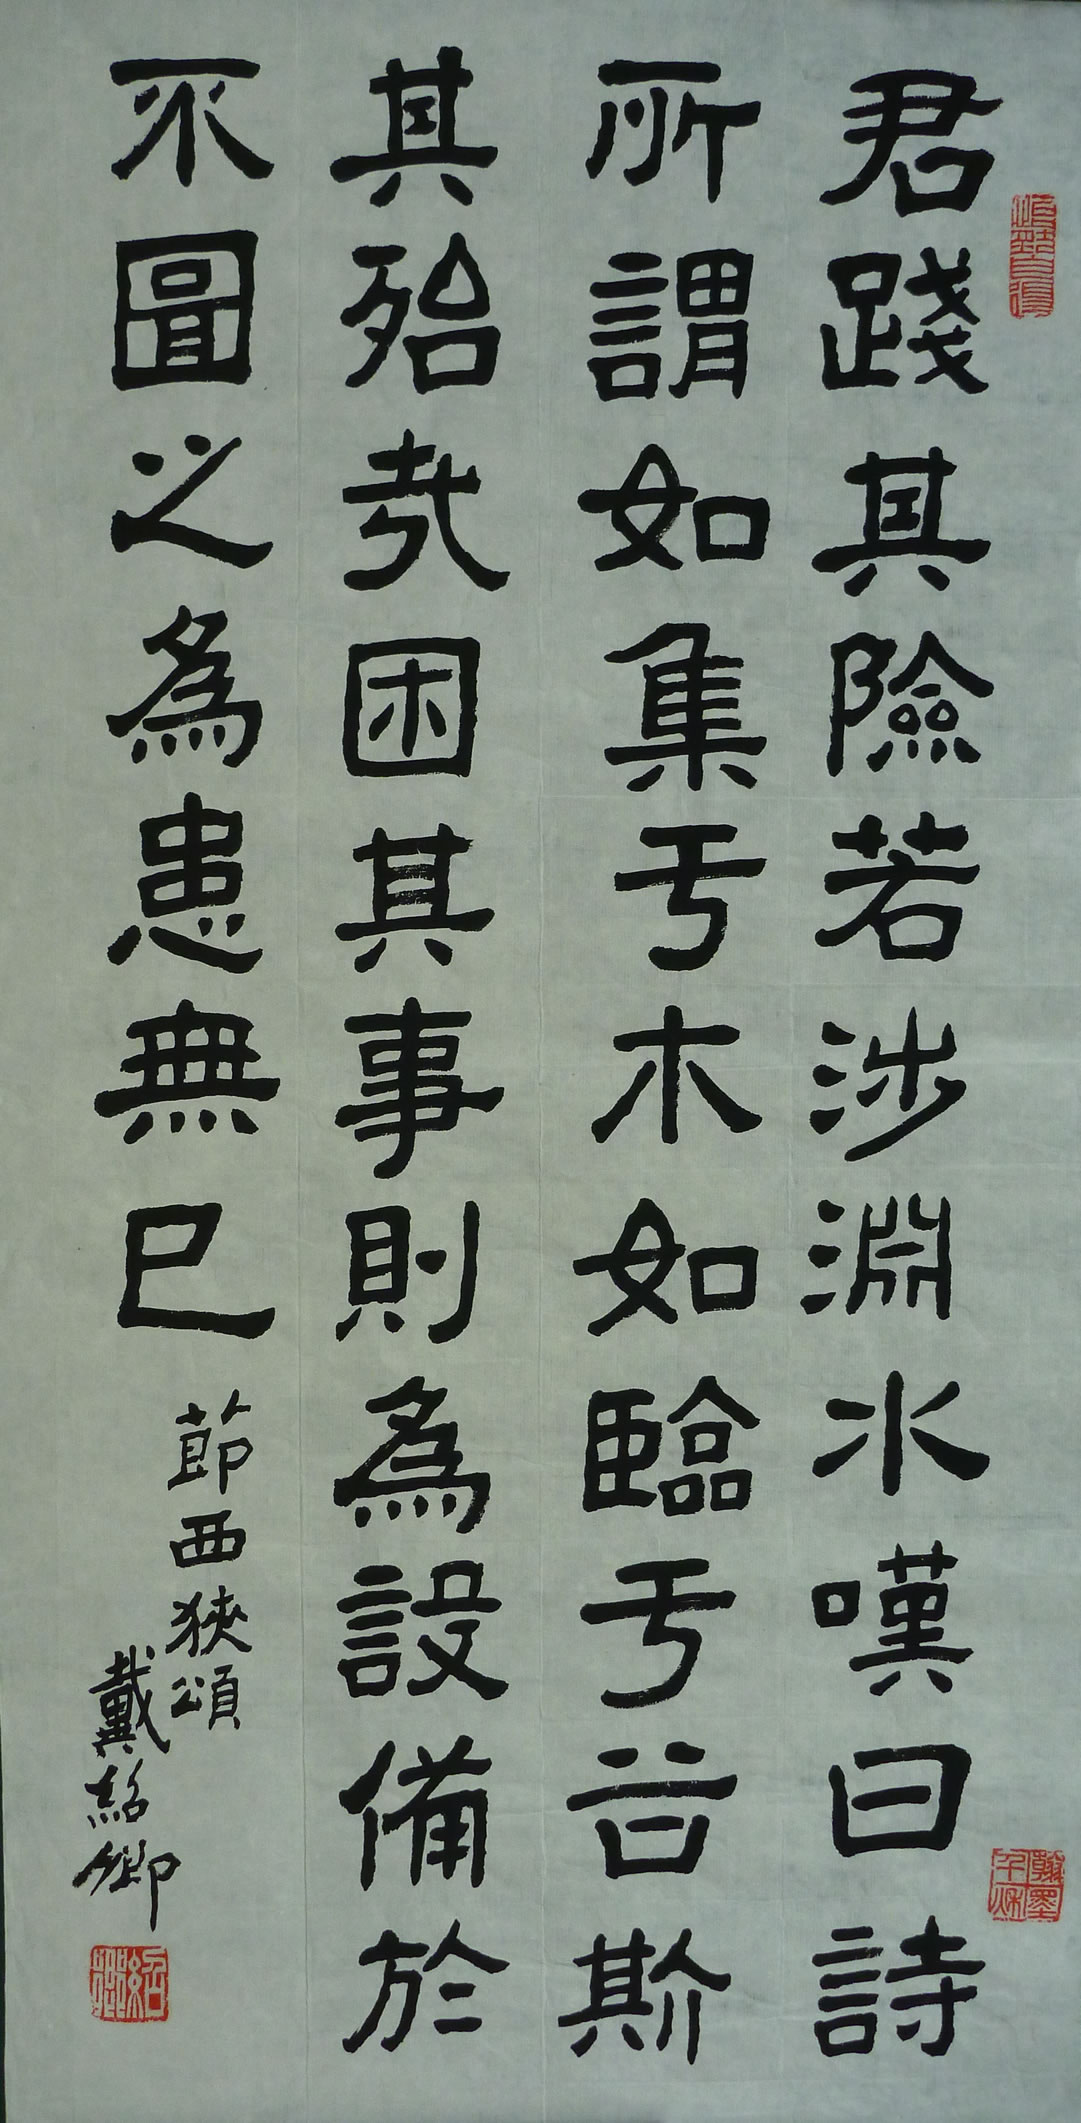 君踐其險若涉淵水嘆曰詩
所謂如集于木如臨于谷斯
其殆哉困其事則為設備於
不圖之為患無已
節西狹頌
戴紹卿
紹卿
翰墨千秋